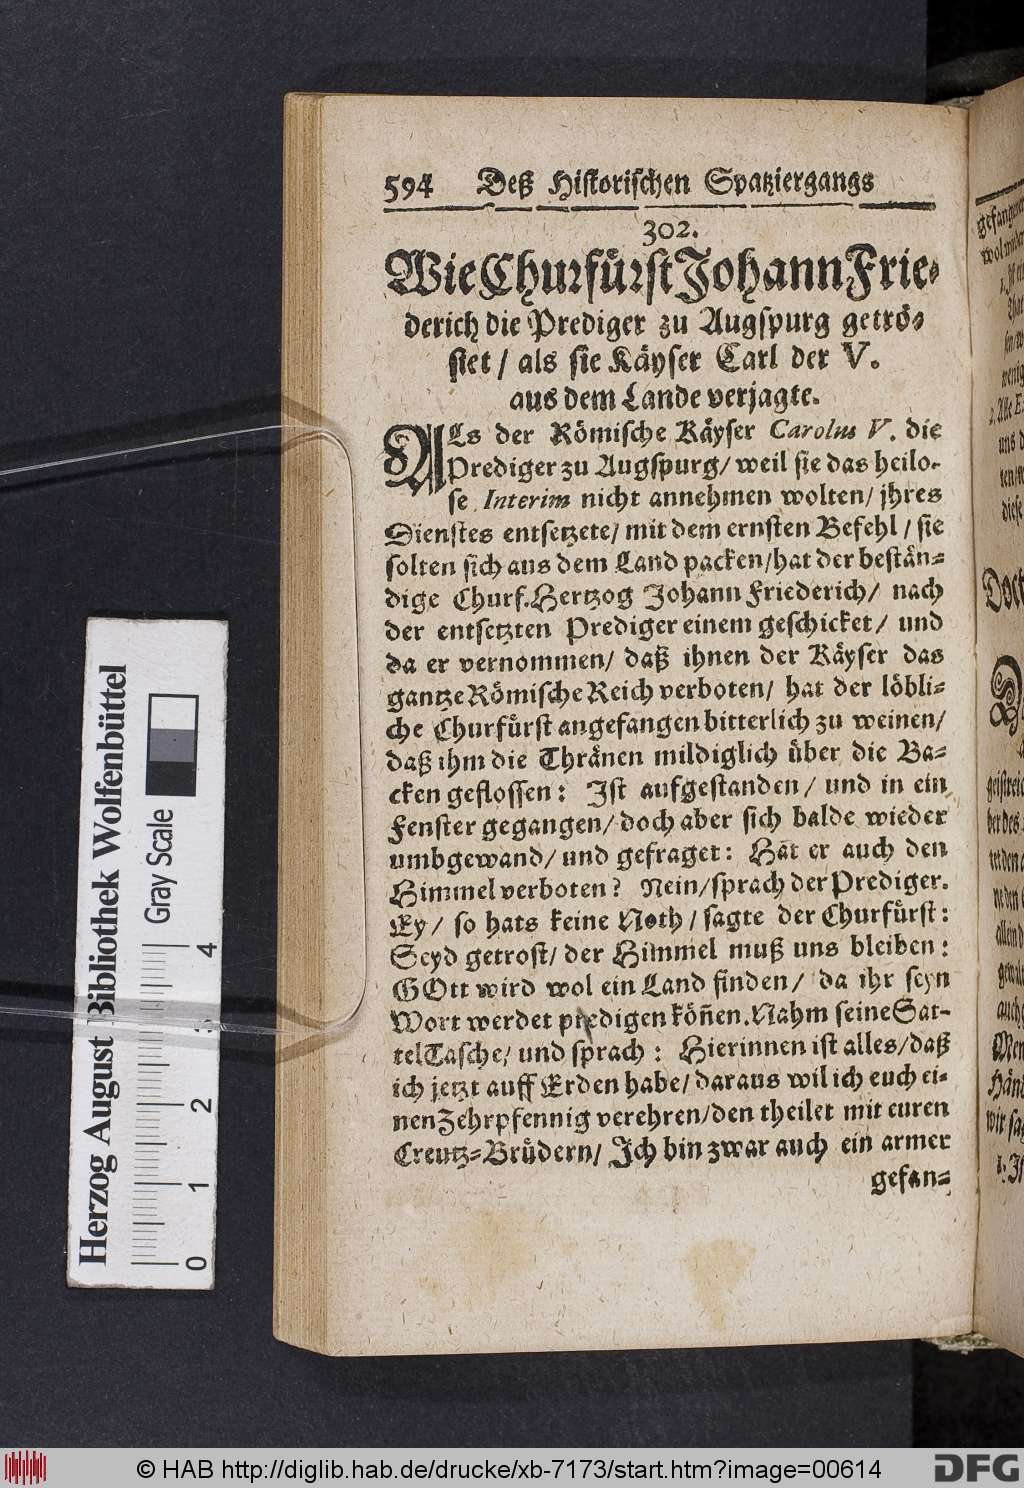 594 Deß Historischen Spatziergangs
302.
Wie Churfürst Johann Frie-
derich die Prediger zu Augspurg getrö-
stet / als sie Käyser Carl der V.
aus dem Lande verjagte.
ALs der Römische Käyser Carolus V. die
Prediger zu Augspurg / weil sie das heilo-
se Interim nicht annehmen wolten / jhres
Dienstes entsetzete / mit dem ernsten Befehl / sie
solten sich aus dem Land packen / hat der bestän-
dige Churf. Hertzog Johann Friederich / nach
der entsetzten Prediger einem geschicket / und
da er vernommen / daß ihnen der Käyser das
gantze Römische Reich verboten / hat der löbli-
che Churfürst angefangen bitterlich zu weinen /
daß ihm die Thränen mildiglich über die Ba-
cken geflossen: Ist aufgestanden / und in ein
Fenster gegangen / doch aber sich balde wieder
umbgewand / und gefraget: Hat er auch den
Himmel verboten? Nein / sprach der Prediger.
Ey / so hats keine Noth / sagte der Churfürst:
Seyd getrost / der Himmel muß uns bleiben:
GOtt wird wol ein Land finden / da ihr seyn
Wort werdet predigen köñen. Nahm seine Sat-
tel Tasche / und sprach: Hierinnen ist alles / daß
ich jetzt auff Erden habe / daraus wil ich euch ei-
nen Zehrpfennig verehren / den theilet mit euren
Creutz-Brüdern / Ich bin zwar auch ein armer
gefan-
Herzog August Bibliothek Wolfenbüttel
Gray Scale
0 1 2 3 4
© HAB http://diglib.hab.de/drucke/xb-7173/start.htm?image=00614
DFG